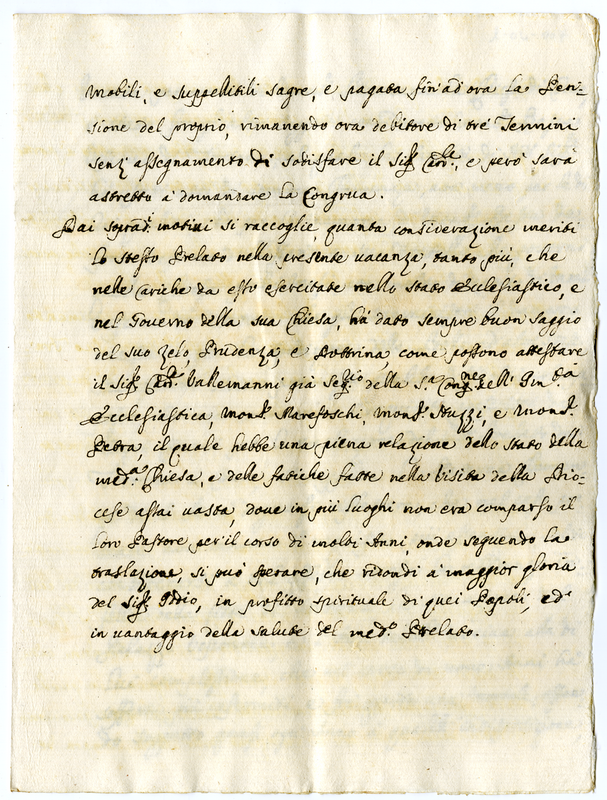 mobili, e suppellitili sagre, e pagata fin'ad ora la Pen=
sione del proprio, rimanendo ora debitore di trè Termini
senz' assegnamento di sodisfare il Sig.r Card.le, e però sarà
astretto à domandare la Congrua.
Dai soprad.i motivi si raccoglie, quanta considerazione meriti
lo stesso Prelato nella presente vacanza, tanto più, che
nelle cariche da esso esercitate nello stato Ecclesiastico, e
nel Governo della sua Chiesa, hà dato sempre buon saggio
del suo zelo, Prudenza, e Dottrina, come possono attestare
il Sig.r Card.le Vallemanni già Seg.rio della S.a Cong.ne dell' Imm.tà
Ecclesiastica, Mons.r Marefoschi, Mons.r Nuzzi, e Mons.r
Petra, il quale hebbe una piena relazione dello stato della
med.a Chiesa, e delle fatiche fatte nella visita della Dio=
cese assai vasta, dove in più luoghi non era comparso il
loro Pastore per il corso di molti Anni, onde seguendo la
traslazione, si può sperare, che ridondi à maggior gloria
del Sig.r Iddio, in profitto spirituale di quei Popoli, ed
in vantaggio della salute del med.o Prelato.